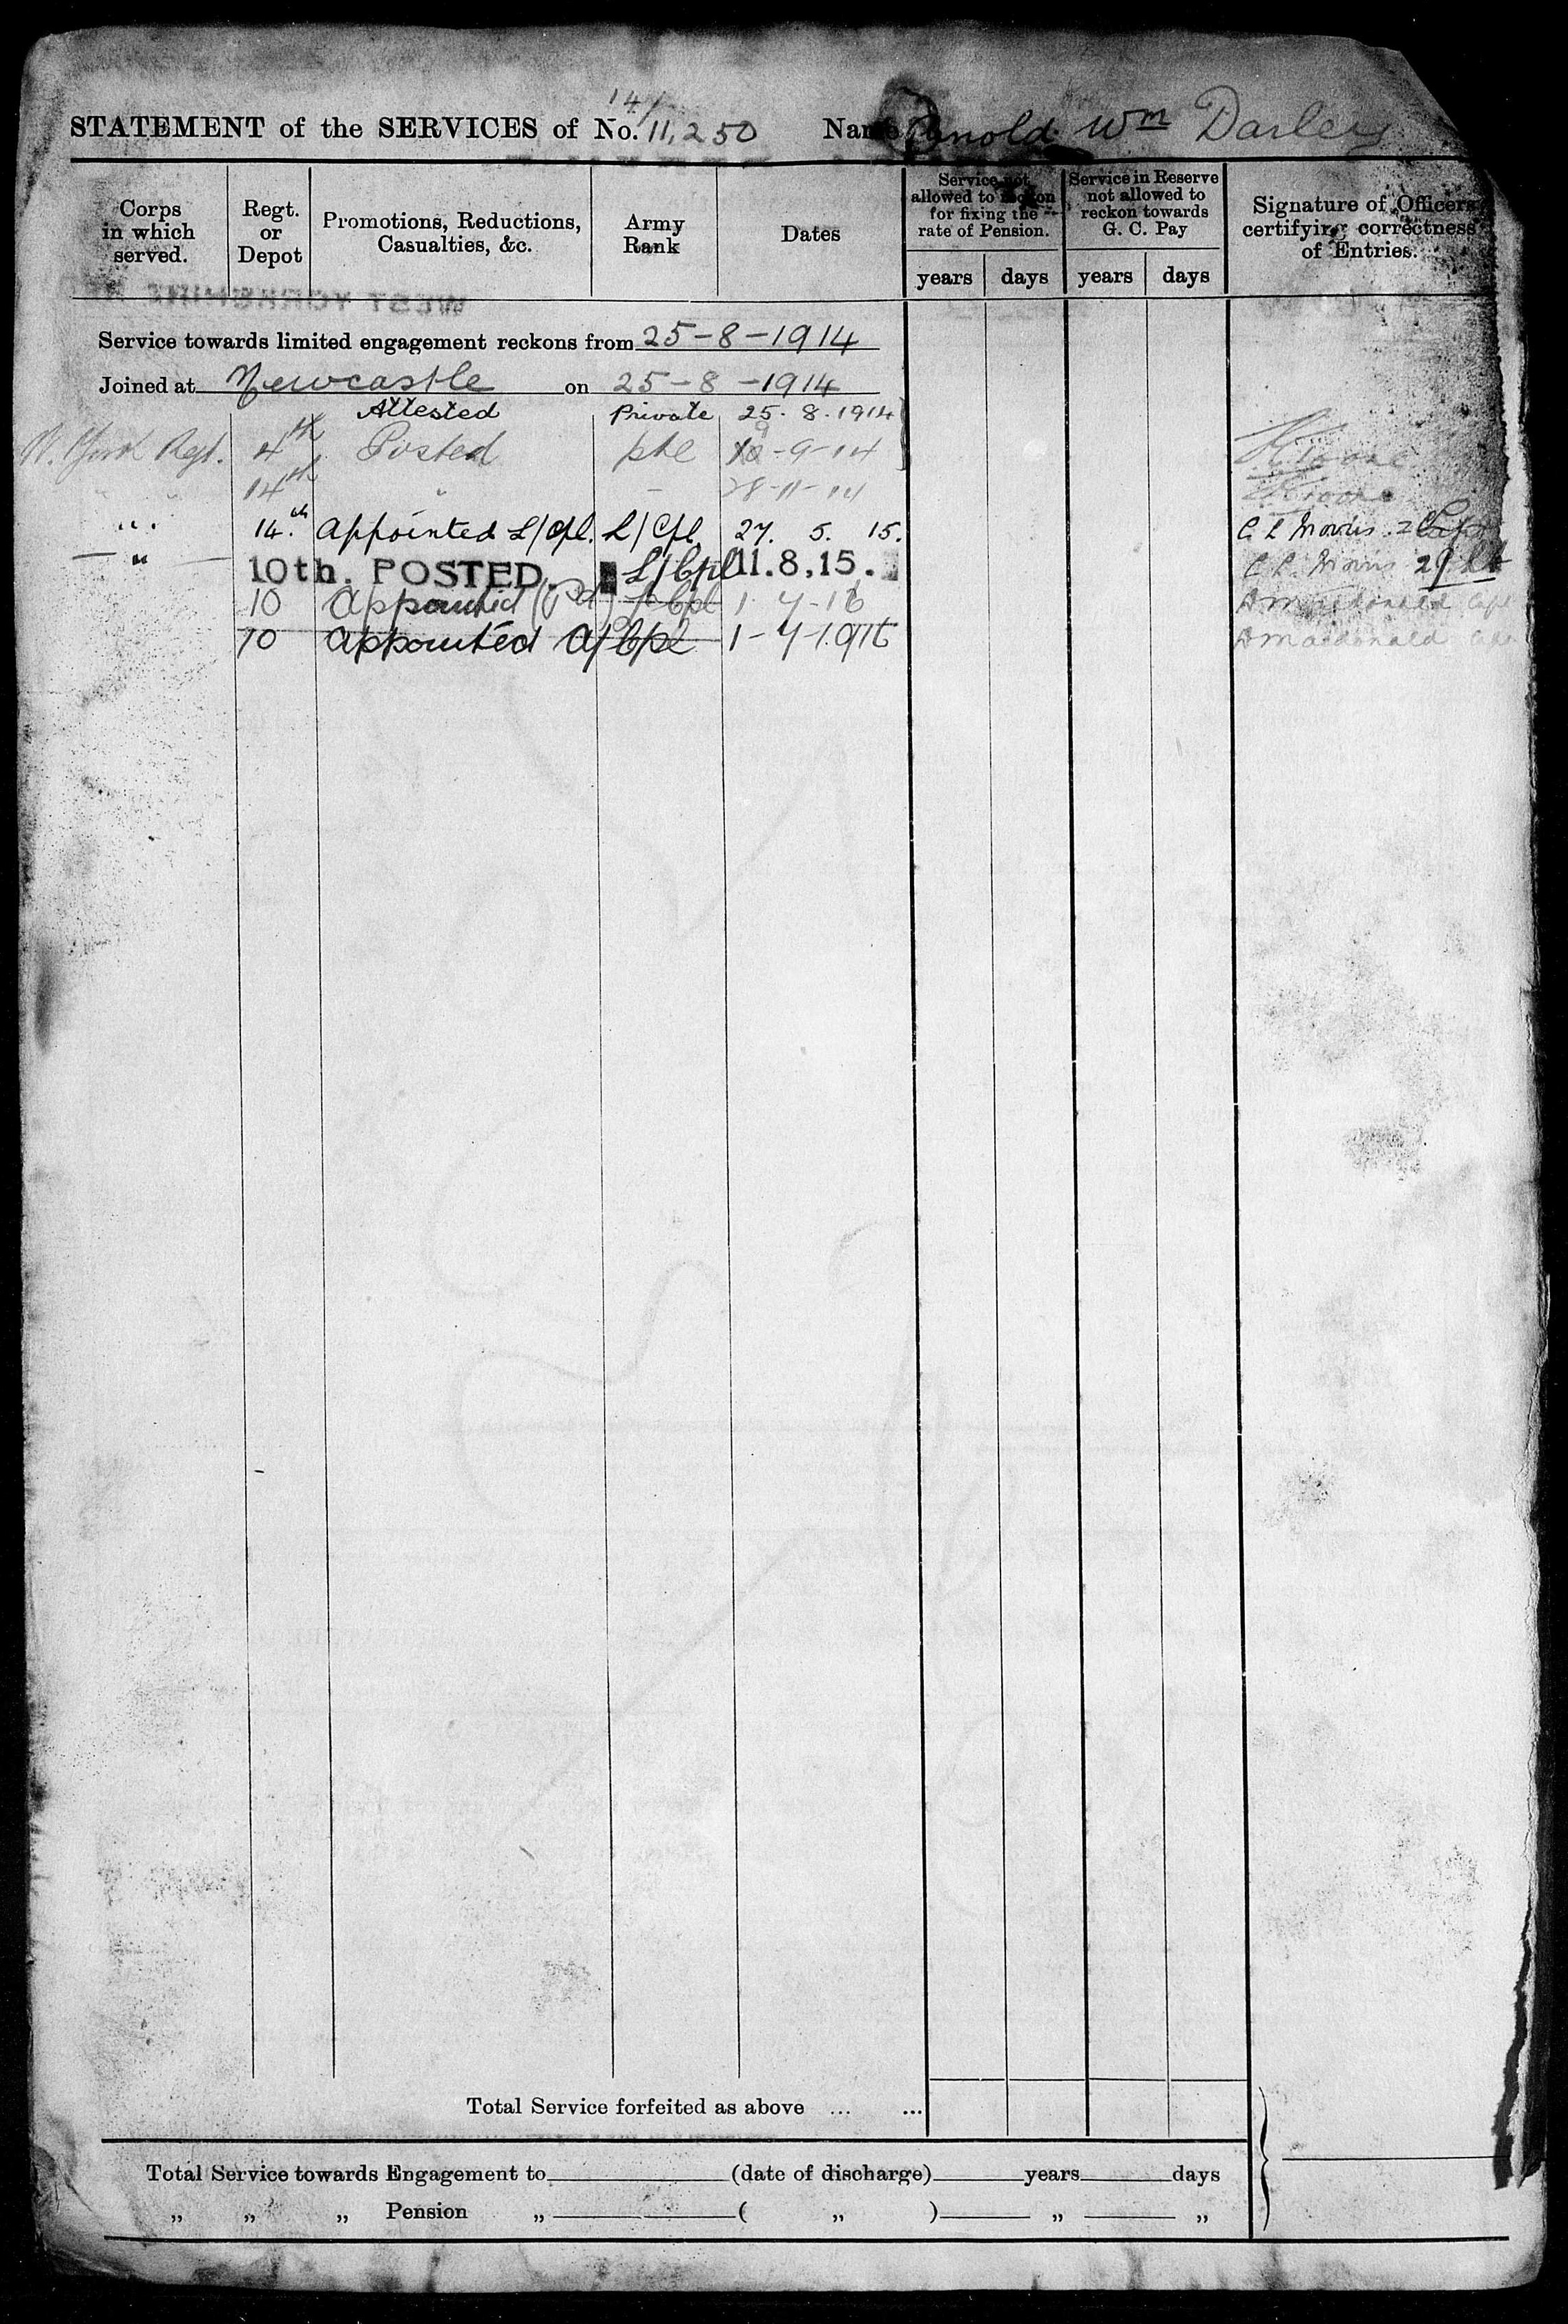 14/
STATEMENT of the SERVICES of No. 11,250 Name Arnold Wm Darley
Corps in which served.
Regt. or Depot
Promotions, Reductions, Casualties, &c.
Army Rank
Dates
Service not allowed to reckon for fixing the rate of Pension.
years days
Service in Reserve not allowed to reckon towards G. C. Pay
years days
Signature of Officers certifying correctness of Entries.
WEST YORKSHIRE
Service towards limited engagement reckons from 25-8-1914
Joined at Newcastle on 25-8-1914
Attested Private 25. 8. 1914
W. York Regt. 4th Posted pte -9-14
" 14th " 28-11-14
" 14th Appointed L/Cpl. L/Cpl. 27. 5. 15. C L Morris
" 10th. POSTED. L/Cpl 11.8,15. C L Morris 2/Lt
10 Appointed (Pd) Cpl 1-4-16 A Macdonald Capt
10 Appointed A/Cpl 1-4-1916 A Macdonald Capt
Total Service forfeited as above ... ...
Total Service towards Engagement to (date of discharge) years days
„ „ „ Pension „ ( „ ) „ „